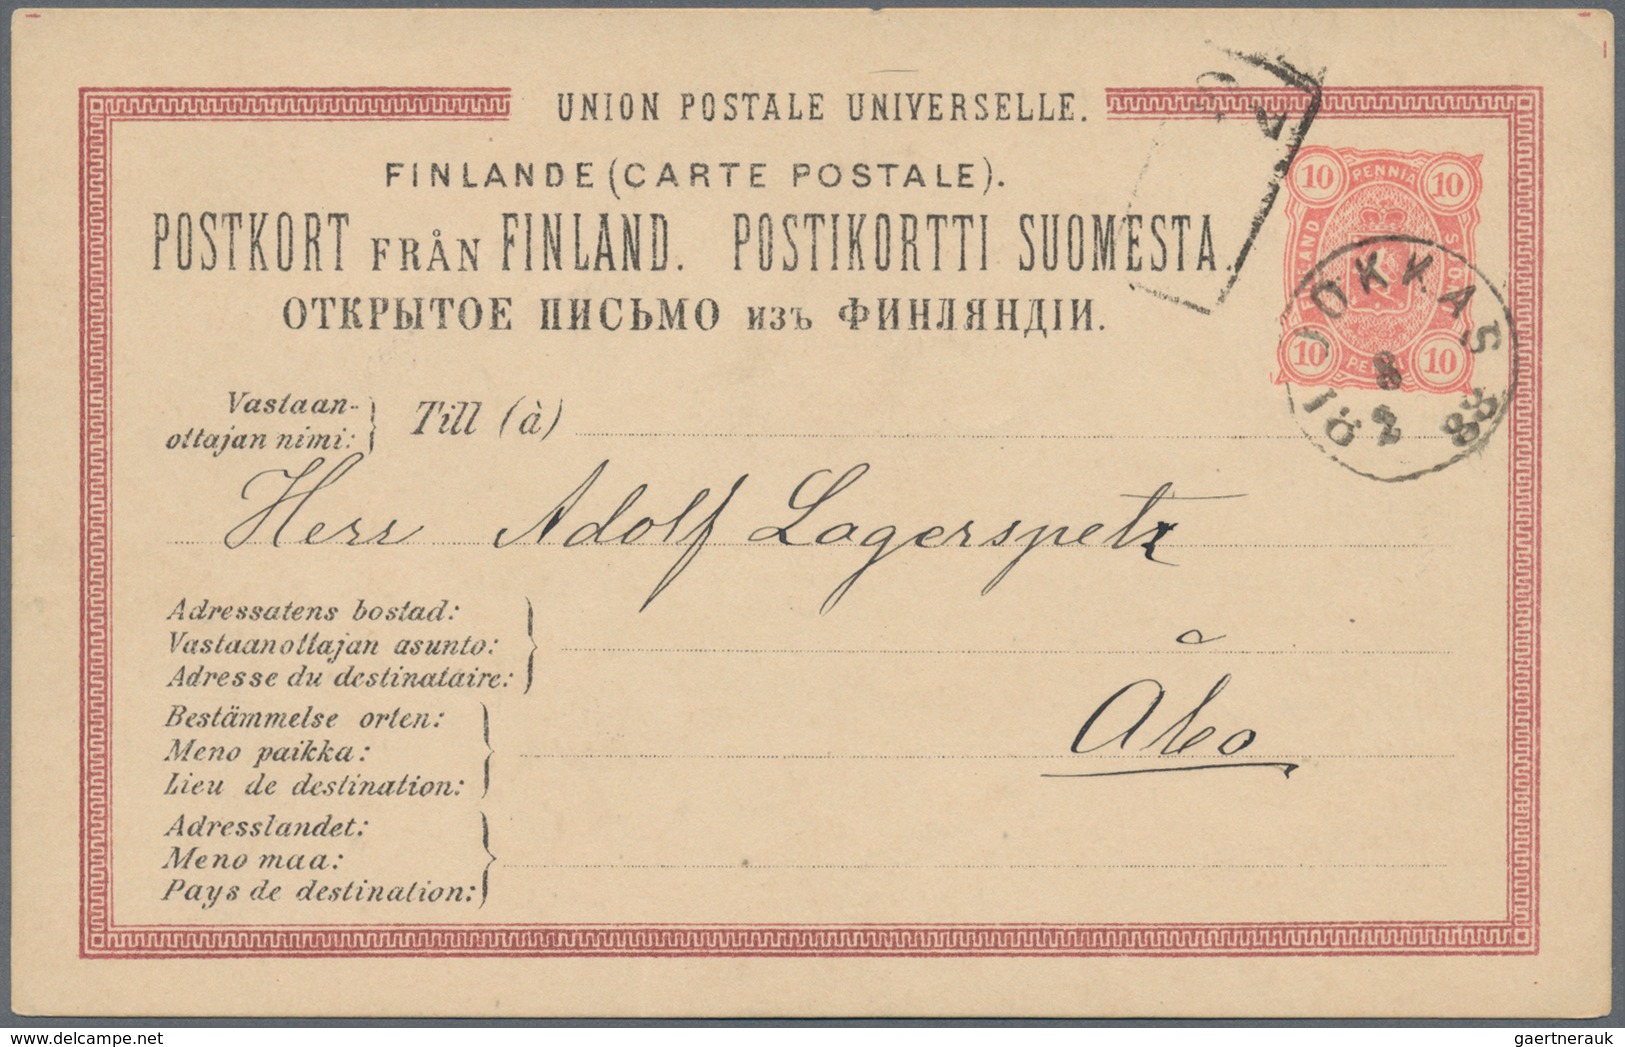 UNION POSTALE UNIVERSELLE.
FINLANDE (CARTE POSTALE).
POSTKORT FRÅN FINLAND. POSTIKORTTI SUOMESTA.
ОТКРЫТОЕ ПИСЬМО изъ ФИНЛЯНДІИ.
10 PENNIÄ 10
10 PENNI 10
JOKKAS
8
2
18 88
Vastaan-
ottajan nimi: Till (à)
Herr Adolf Lagerspetz
Adressatens bostad:
Vastaanottajan asunto:
Adresse du destinataire:
Bestämmelse orten:
Meno paikka:
Lieu de destination:
Åbo
Adresslandet:
Meno maa:
Pays de destination:
gaertnerauk